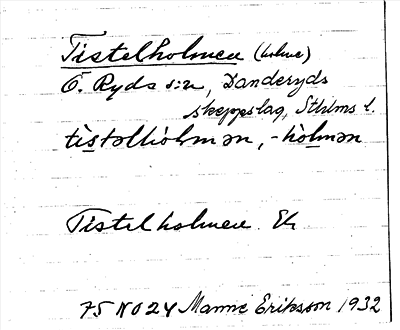 Tistelholmen (holme)
Ö. Ryds s:n, Danderyds
skeppslag, Sthlms l.
tistəlhòlmən, -hòlmən
Tistelholmen. Ek
75 NO 24 Manne Eriksson 1932